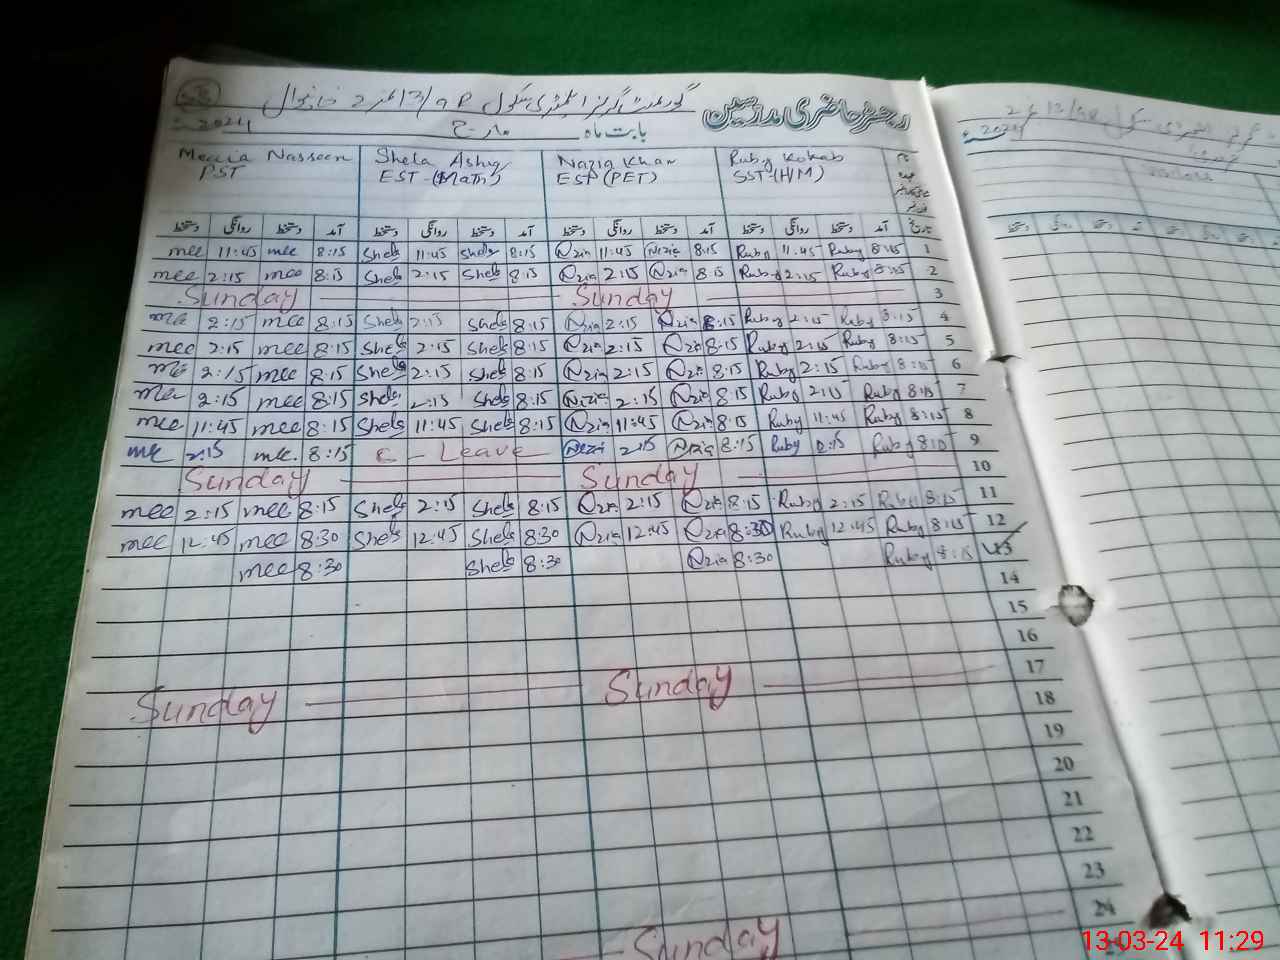 رجسٹر حاضری مدرسین
گورنمنٹ گرلز ایلیمنٹری سکول 13/9R نمبر 2 خانیوال
بابت ماہ مارچ 2024ء
Naseen Shela Nazia Khan Ruby Kokab
PST EST (Math) EST (PET) SST (H/M)
دستخط روانگی دستخط آمد دستخط روانگی دستخط آمد دستخط روانگی دستخط آمد دستخط روانگی دستخط آمد تاریخ
mee 11:45 mee 8:15 Shela 11:45 Shela 8:15 Nzia 11:45 Nezia 8:15 Ruby 11:45 Ruby 8:15 1
mee 2:15 mee 8:15 Shela 2:15 Shela 8:15 Nzia 2:15 Nzia 8:15 Ruby 2:15 Ruby 8:15 2
Sunday Sunday 3
mee 2:15 mee 8:15 Shela 2:15 Shela 8:15 Nzia 2:15 Nzia 8:15 Ruby 2:15 Ruby 8:15 4
mee 2:15 mee 8:15 Shela 2:15 Shela 8:15 Nzia 2:15 Nzia 8:15 Ruby 2:15 Ruby 8:15 5
me 2:15 mee 8:15 Shela 2:15 Shela 8:15 Nzia 2:15 Nzia 8:15 Ruby 2:15 Ruby 8:15 6
mee 2:15 mee 8:15 Shela 2:15 Shela 8:15 Nezia 2:15 Nzia 8:15 Ruby 2:15 Ruby 8:15 7
mee 11:45 mee 8:15 Shela 11:45 Shela 8:15 Nzia 11:45 Nzia 8:15 Ruby 11:45 Ruby 8:15 8
me 2:15 me 8:15 C - Leave Nezia 2:15 Nezia 8:15 Ruby Ruby 8:15 9
Sunday Sunday 10
mee 2:15 mee 8:15 Shela 2:15 Shela 8:15 Nzia 2:15 Nzia 8:15 Ruby 2:15 Ruby 8:15 11
mee 12:45 mee 8:30 Shela 12:45 Shela 8:30 Nzia 12:45 Nzia 8:30 Ruby 12:45 Ruby 8:15 12
mee 8:30 Shela 8:30 Nzia 8:30 Ruby 8:15 13
14
15
16
Sunday Sunday 17
18
19
20
21
22
23
Sunday 24
13-03-24 11:29